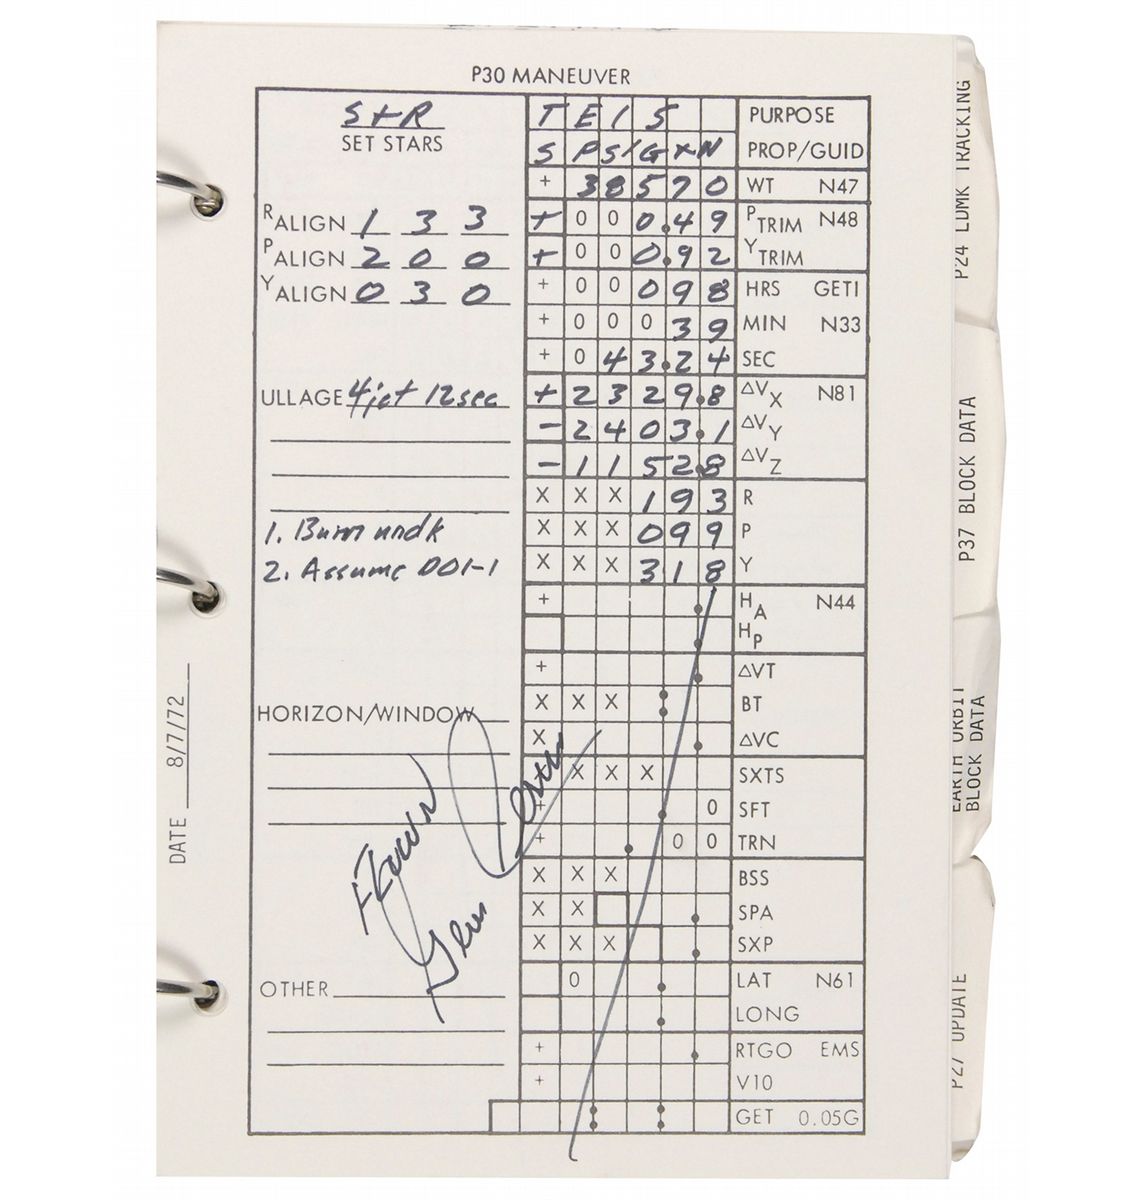 P30 MANEUVER
S+R
SET STARS
T E I 5 PURPOSE
S P S / G + N PROP/GUID
+ 3 8 5 7 0 WT N47
R ALIGN 1 3 3
+ 0 0 0.4 9 P TRIM N48
P ALIGN 2 0 0
+ 0 0 0.9 2 Y TRIM
Y ALIGN 0 3 0
+ 0 0 0 9 8 HRS GETI
+ 0 0 0 3 9 MIN N33
+ 0 4 3.2 4 SEC
ULLAGE 4jet 12sec
+ 2 3 2 9.8 ΔVX N81
- 2 4 0 3.1 ΔVY
- 1 1 5 2.8 ΔVZ
X X X 1 9 3 R
1. Burn undk
X X X 0 9 9 P
2. Assume DOI-1
X X X 3 1 8 Y
+ HA N44
HP
+ ΔVT
X X X BT
HORIZON/WINDOW
X ΔVC
X X X SXTS
+ 0 SFT
+ 0 0 TRN
X X X BSS
X X SPA
X X X SXP
Flown
Gene Cernan
OTHER
0 LAT N61
LONG
+ RTGO EMS
+ V10
GET 0.05G
DATE 8/7/72
P24 LDMK TRACKING
P37 BLOCK DATA
EARTH ORBIT
BLOCK DATA
P27 UPDATE